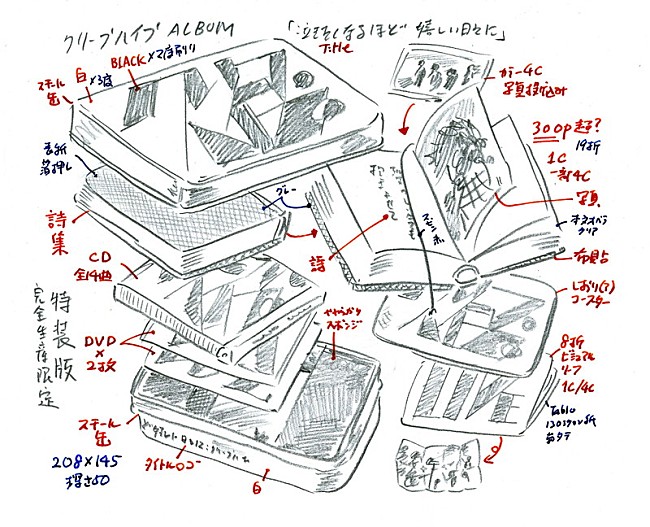 クリープハイプ ALBUM
「泣きたくなるほど嬉しい日々に」
Title
BLACK×2度刷り
白×3度
スチール
缶
カラー4C
写真投込み
300p超?
19折
1C
一部4C
写真
表紙
箔押し
グレー
詩集
詩
オネオペラ
クリア
布貼
CD
全14曲
しおり(?)
コースター
特装版
完全生産限定
DVD
×
2枚
やわらかい
スポンジ
8折
ビジュアル
リーフ
1C/4C
スチール
缶
タイトルロゴ
白
208×145
厚さ50